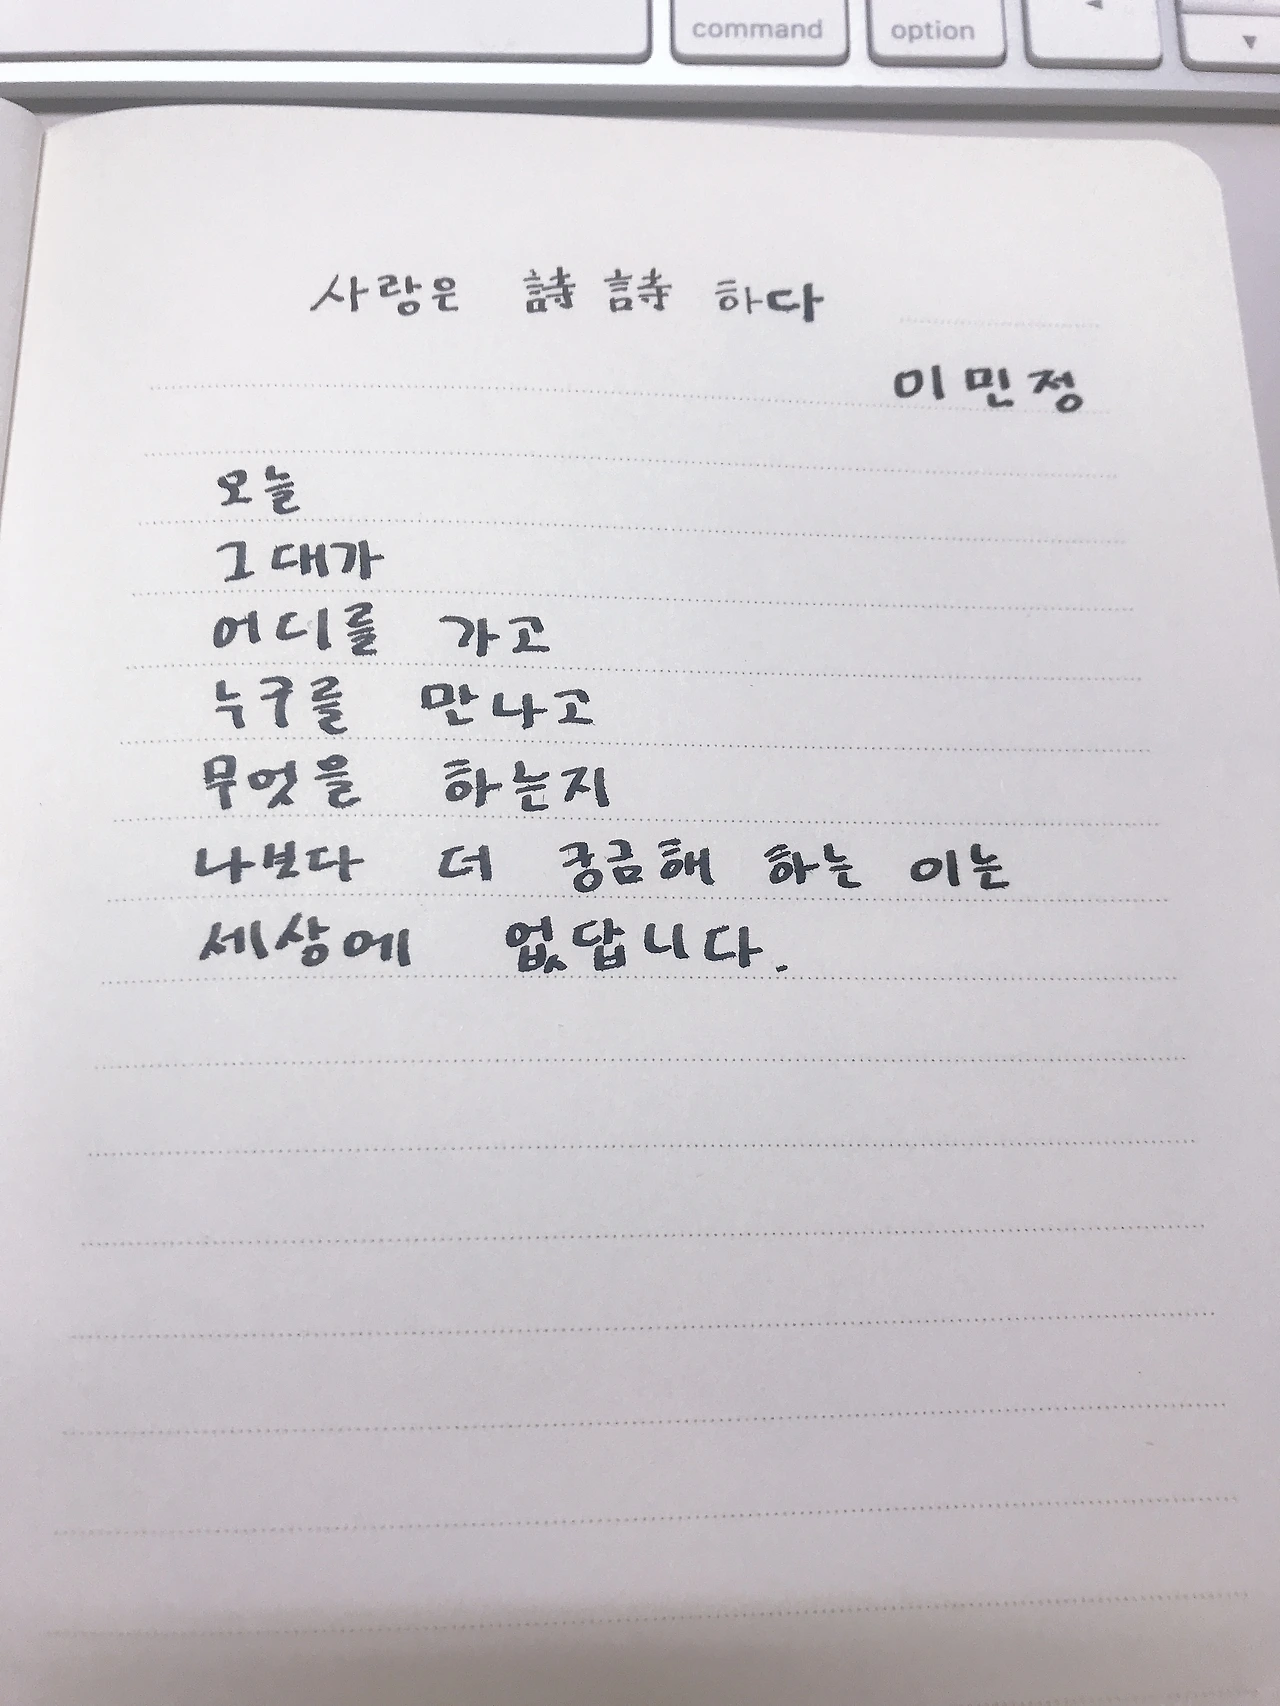 command option ◂ ▾
사랑은 詩詩 하다
이민정
오늘
그대가
어디를 가고
누구를 만나고
무엇을 하는지
나보다 더 궁금해 하는 이는
세상에 없답니다.